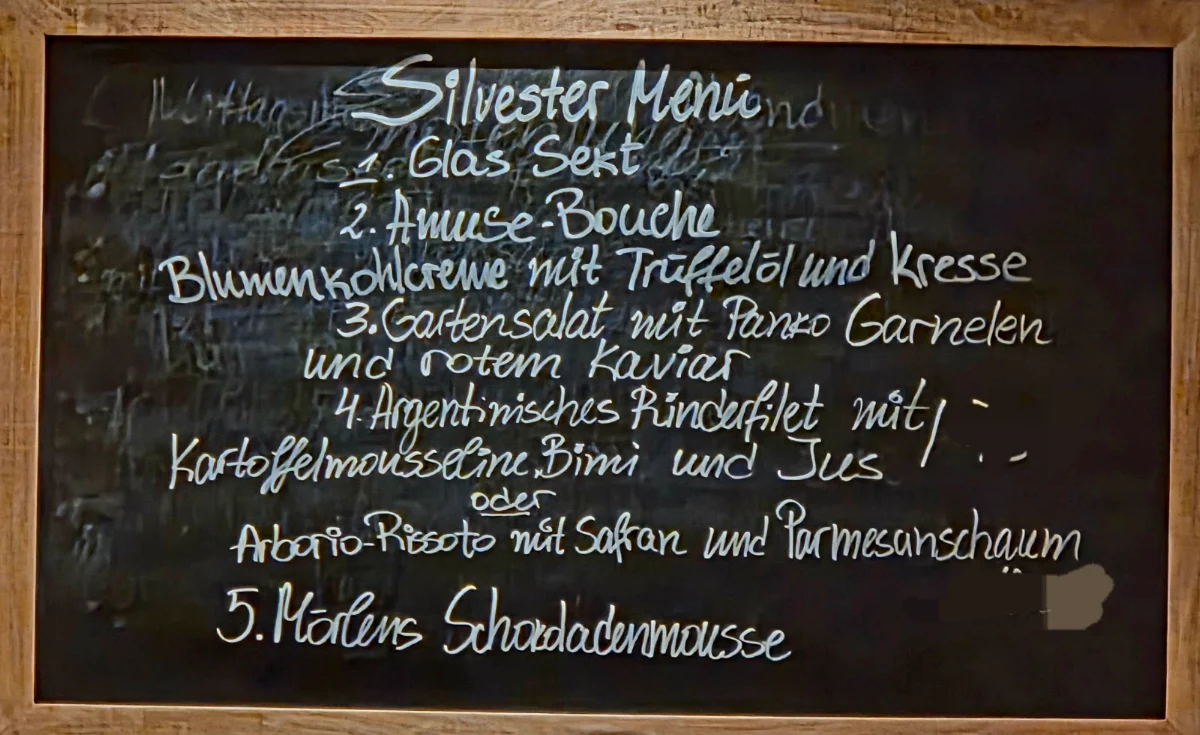 Silvester Menü
1. Glas Sekt
2. Amuse-Bouche
Blumenkohlcreme mit Trüffelöl und Kresse
3. Gartensalat mit Panko Garnelen
und rotem Kaviar
4. Argentinisches Rinderfilet mit
Kartoffelmousseline, Bimi und Jus
oder
Arborio-Rissoto mit Safran und Parmesanschaum
5. Schokoladenmousse